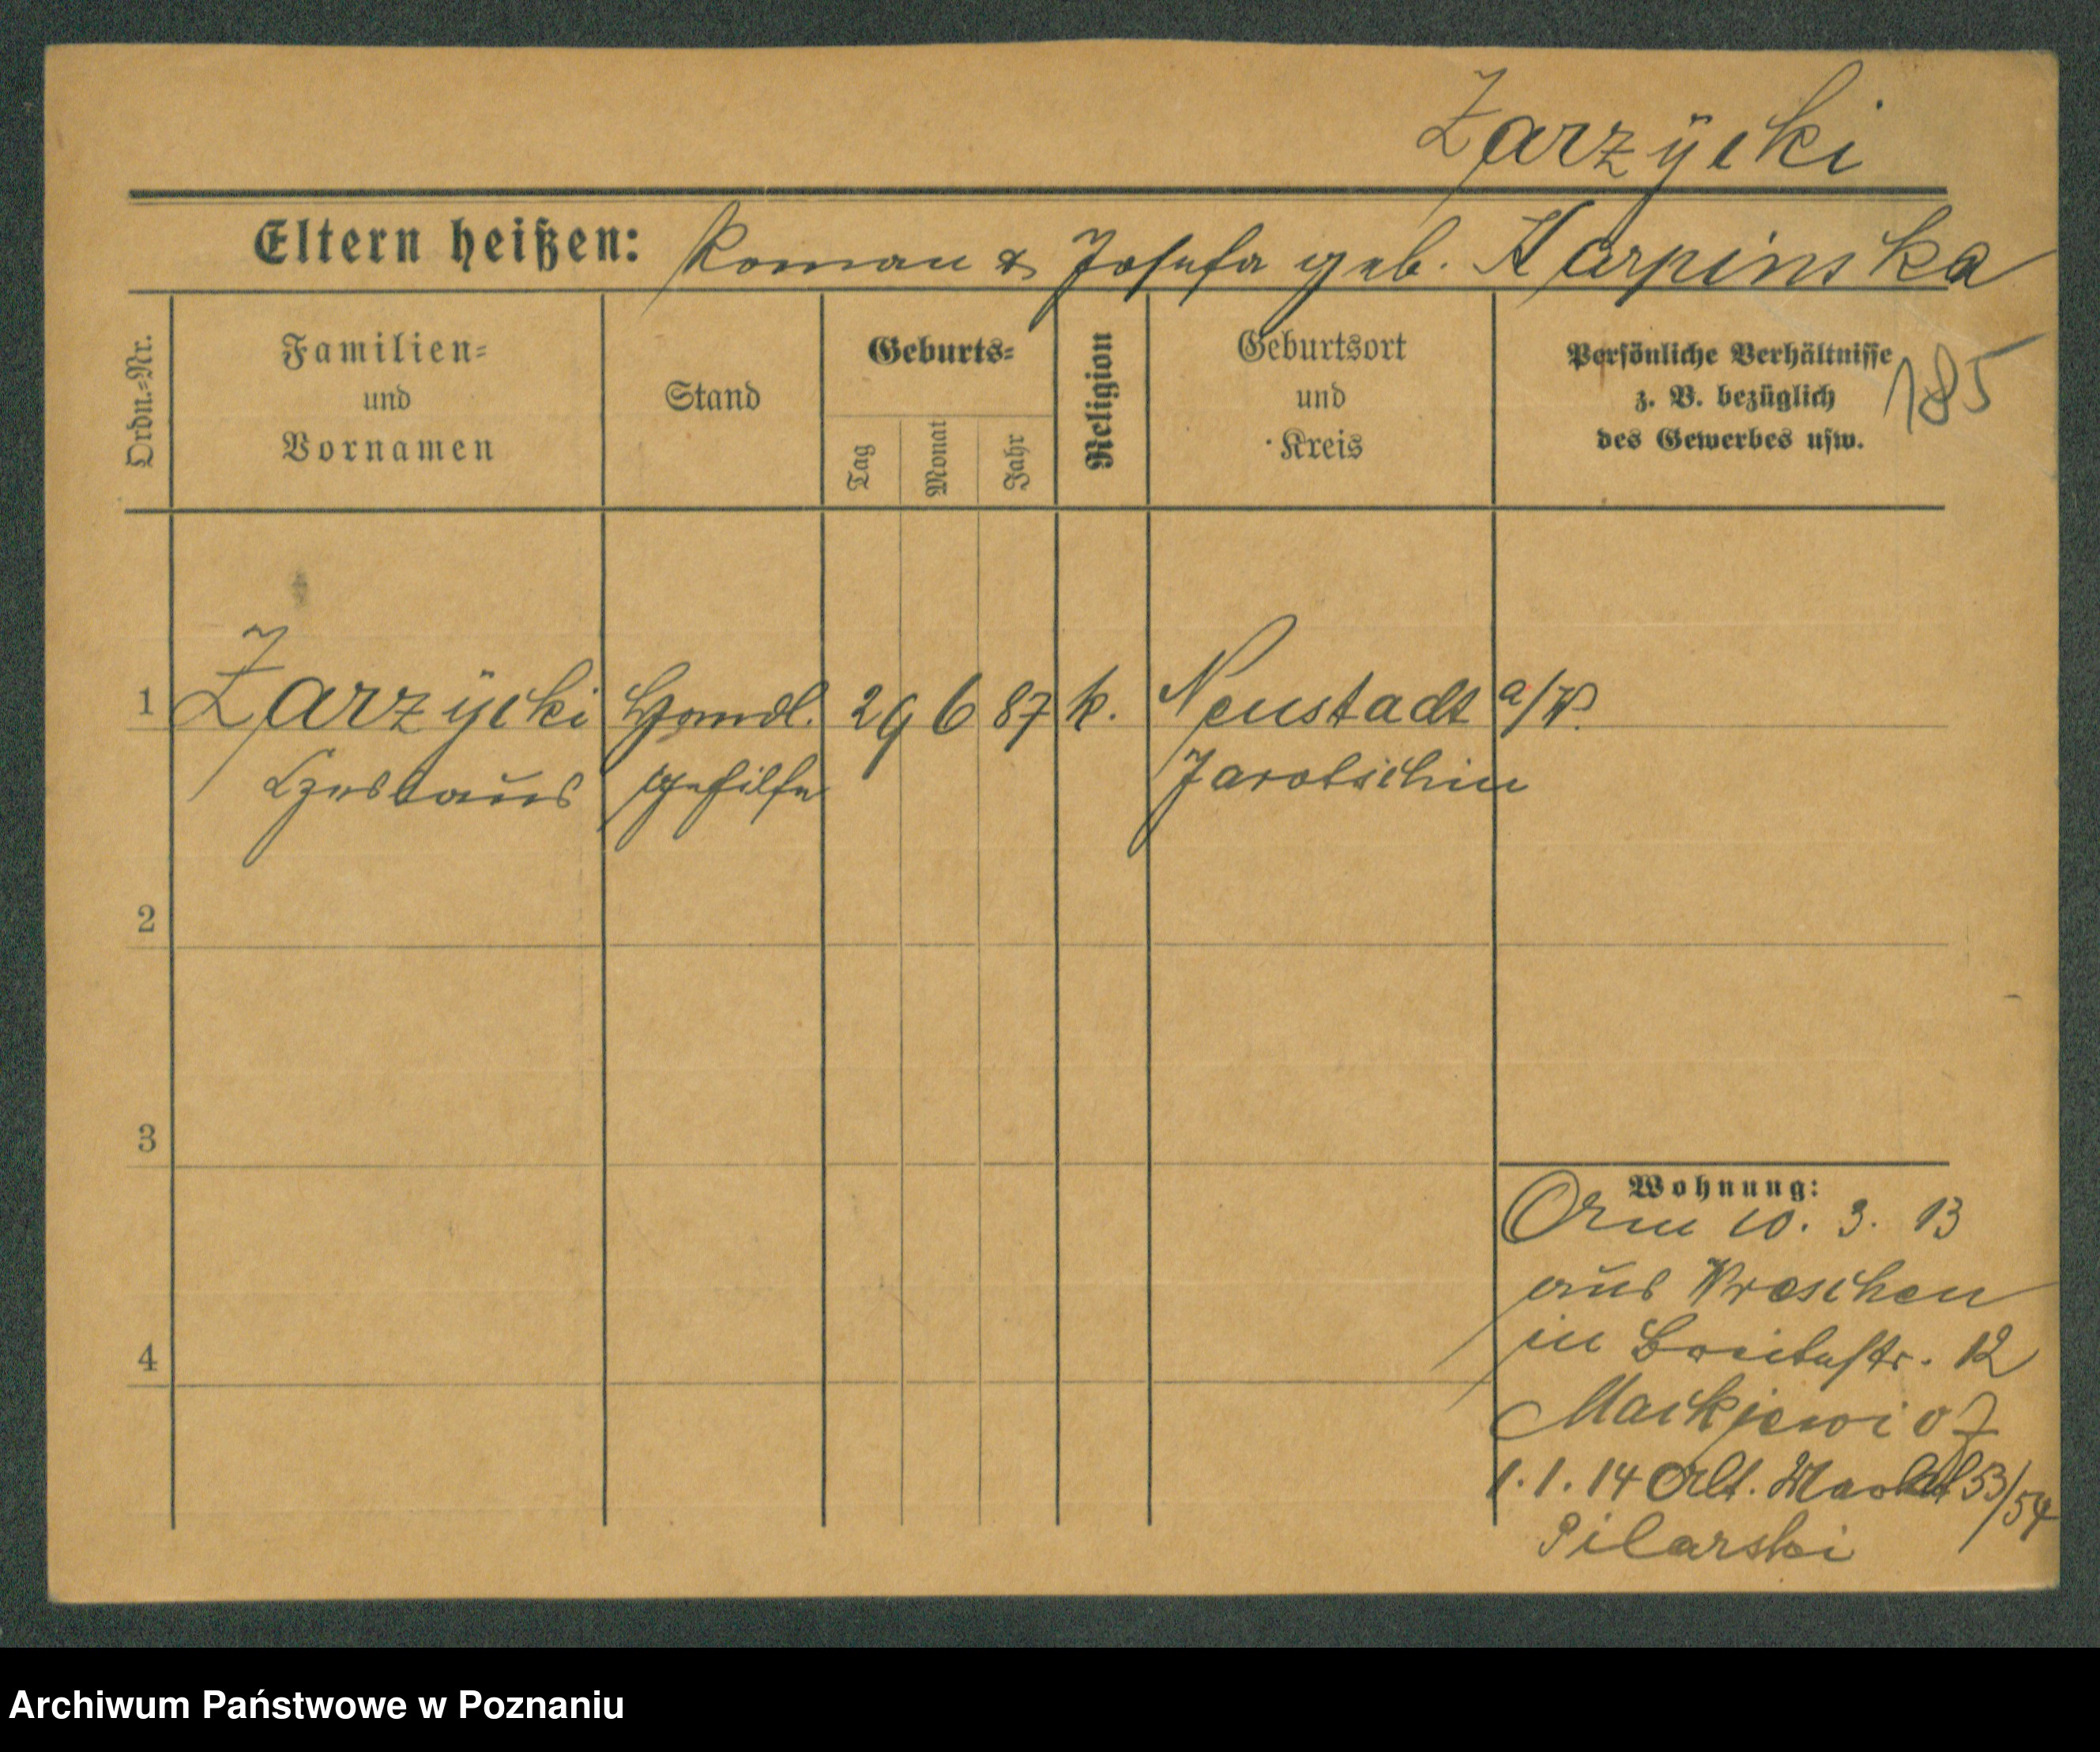 Zarzÿcki
Eltern heißen: Roman & Josefa geb. Karpinska
Ordn.-Nr.
Familien-
und
Vornamen
Stand
Geburts-
Tag
Monat
Jahr
Religion
Geburtsort
und
Kreis
Persönliche Verhältnisse
z. B. bezüglich
des Gewerbes usw.
185
1 Zarzÿcki Handl. 29 6 87 k. Neustadt a/W.
Czeslaus gehilfe Jarotschin
2
3
4
Wohnung:
10. 3. 13
aus Wreschen
in Breitestr. 12
1. 1. 14 Alt. Markt 53/54
Pilarski
Archiwum Państwowe w Poznaniu